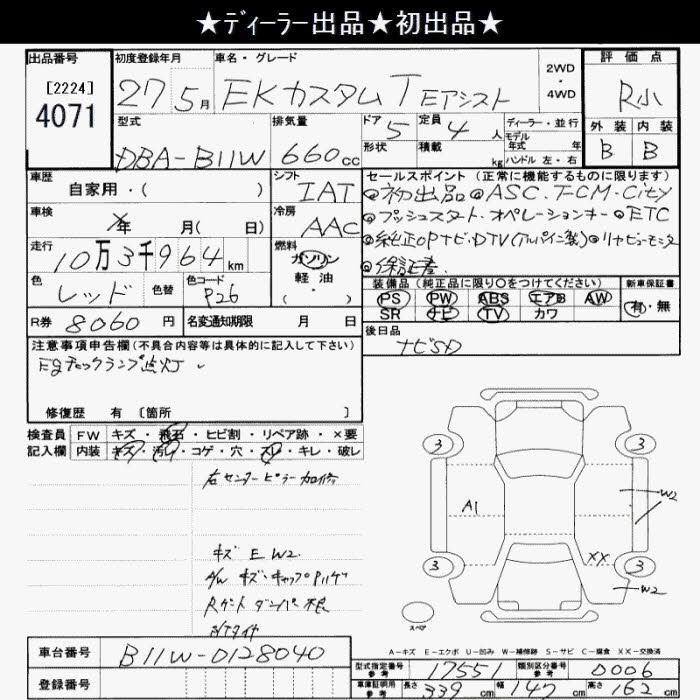 ★ディーラー出品★初出品★
出品番号
[2224]
4071
初度登録年月
27年 5月
車名・グレード
EKカスタム T Eアシスト
2WD
・
4WD
評価点
R小
外装 内装
B B
型式
DBA-B11W
排気量
660cc
ドア
5
形状
定員
4人
積載
kg
ディーラー・並行
モデル
年式 年
ハンドル 左・右
車歴
自家用・( )
シフト
IAT
セールスポイント(正常に機能するものに限ります)
◎初出品◎ASC.F-CM-City
◎プッシュスタート・オペレーションキー◎ETC
◎純正OPナビ・DTV(アルパイン製)◎リヤビューモニタ
◎保証書
車検
年 月( 日)
冷房
AAC
走行
10万3千964km
燃料
ガソリン
軽油
・
色
レッド
色替
色コード
P26
R券 8060円
名変通知期限 月 日
装備品(純正品に限り○をつけてください)
PS PW ABS エアB AW
SR ナビ TV カワ
新車保証書
有・無
後日品
ナビSD
注意事項申告欄(不具合内容等は具体的に記入して下さい)
Egチェックランプ点灯
修復歴 有 〔箇所 〕
検査員
記入欄
FW キズ・飛石・ヒビ割・リペア跡・×要
内装 キズ・汚れ・コゲ・穴・スレ・キレ・破レ
右センターピラー加修
キズ E W2
A/W キズ・キャップハゲ
Rゲート ダンパー不良
3
3
3
3
A1
W2
XX
W2
スペア
A-キズ E-エクボ U-凹み W-補修跡 S-サビ C-腐食 XX-交換済
車台番号 B11W-0128040
登録番号
型式指定番号
参考
17551
類別区分番号
参考
0006
車庫証明用
参考
長さ 339cm 幅 147cm 高さ 162cm